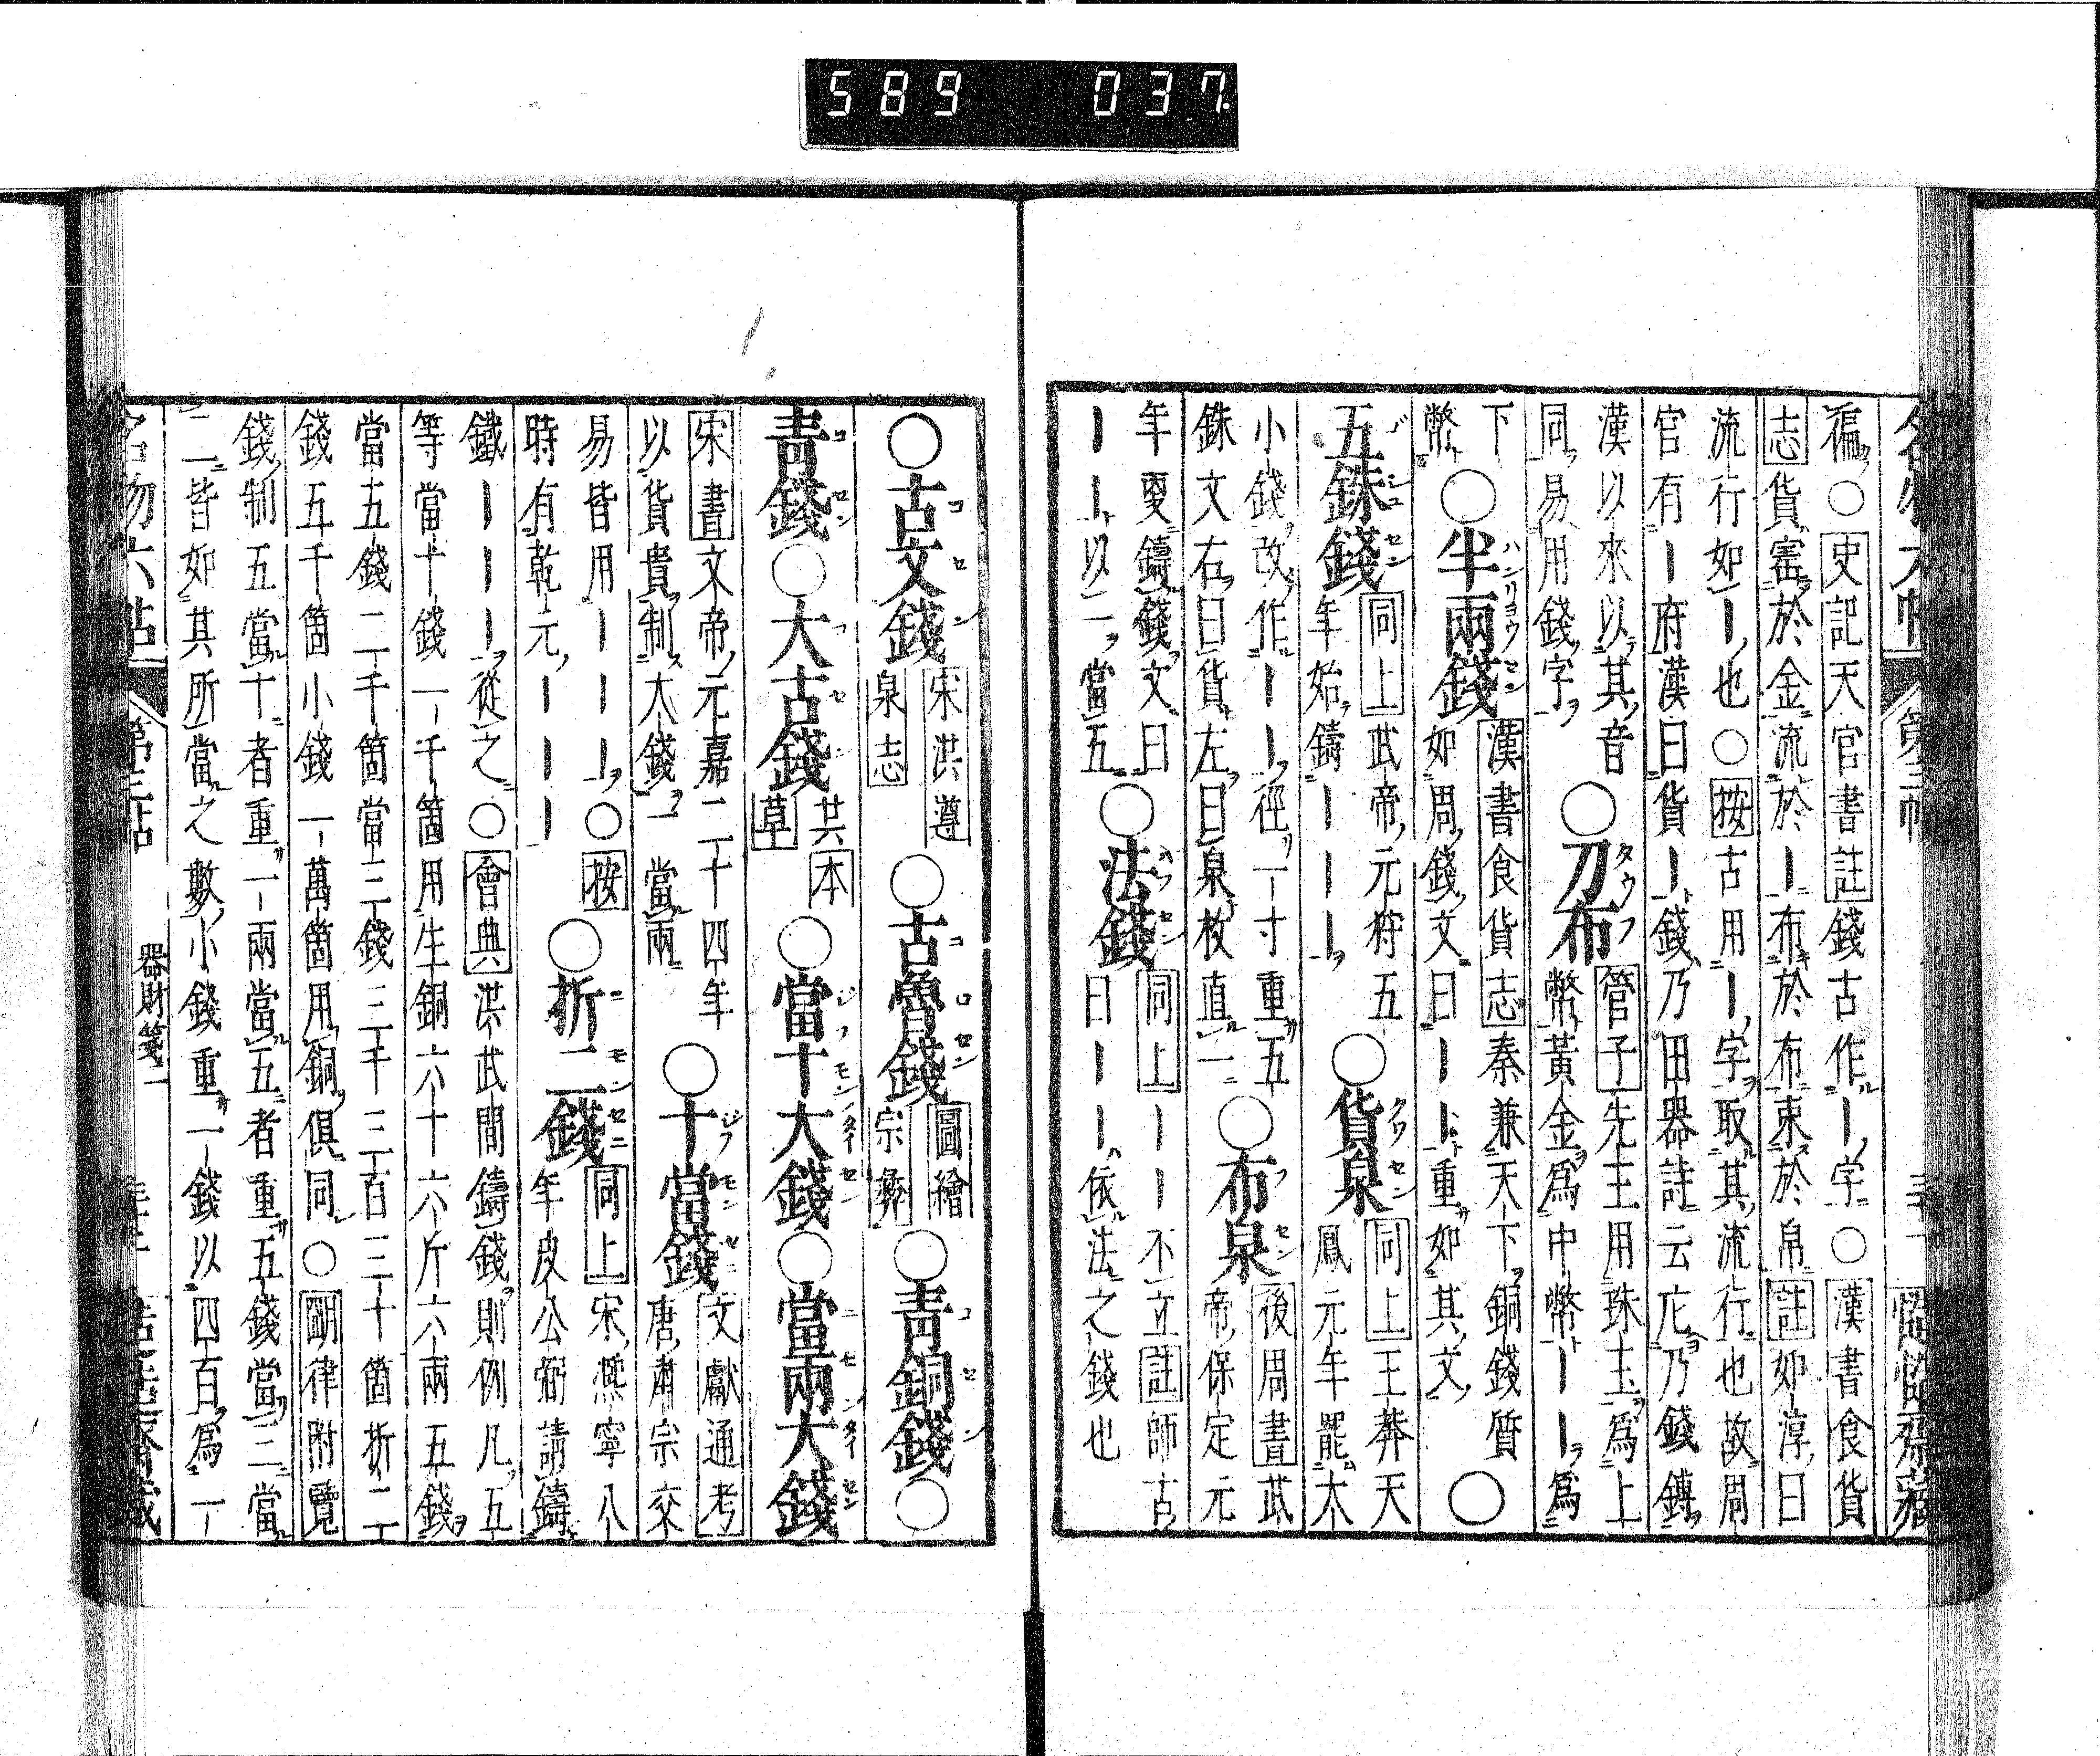 589 037
徧○史記天官書註錢古作ー字○漢書食貨
志貨寳於金流於ー布於布束於帛註如淳曰
流行如ー也○按古用ー字取其流行也故周
官有ー府漢曰貨ー錢乃田器詩云庀乃錢鎛
漢以來以其音
同易用錢字
○刀布
管子先王用珠玉爲上
幣黃金爲中幣ーー爲
下
幣
○半兩錢
漢書食貨志秦兼天下銅錢質
如周錢文曰ーー重如其文
○
五銖錢
同上武帝元狩五
年始鑄ーーー
○貨泉
同上王莽天
鳳元年罷大
小錢改作ーー徑一寸重五
銖文右曰貨左曰泉枚直一
○布泉
後周書武
帝保定元
年更鑄錢文曰
ーー以一當五
○法錢
同上ーー不立註師古
曰ーー依法之錢也
○古文錢
宋洪遵
泉志
○古魯錢
圖繪
宗彝
○青銅錢○
青錢○大古錢
共本
草
○當十大錢○當兩大錢
宋書文帝元嘉二十四年
以貨貴制大錢一當兩
○十當錢
文獻通考
唐肅宗交
易皆用ーーー○按
時有乾元ーーー
○折二錢
同上宋熈寧八
年皮公弼請鑄
鐵ーーー從之○會典洪武間鑄錢則例凡五
等當十錢一千箇用生銅六十六斤六兩五錢
當五錢二千箇當三錢三千三百三十箇折二
錢五千箇小錢一萬箇用銅俱同○明律附覽
錢制五當十者重一兩當五者重五錢當三當
二皆如其所當之數小錢重一錢以四百爲一
器財箋一